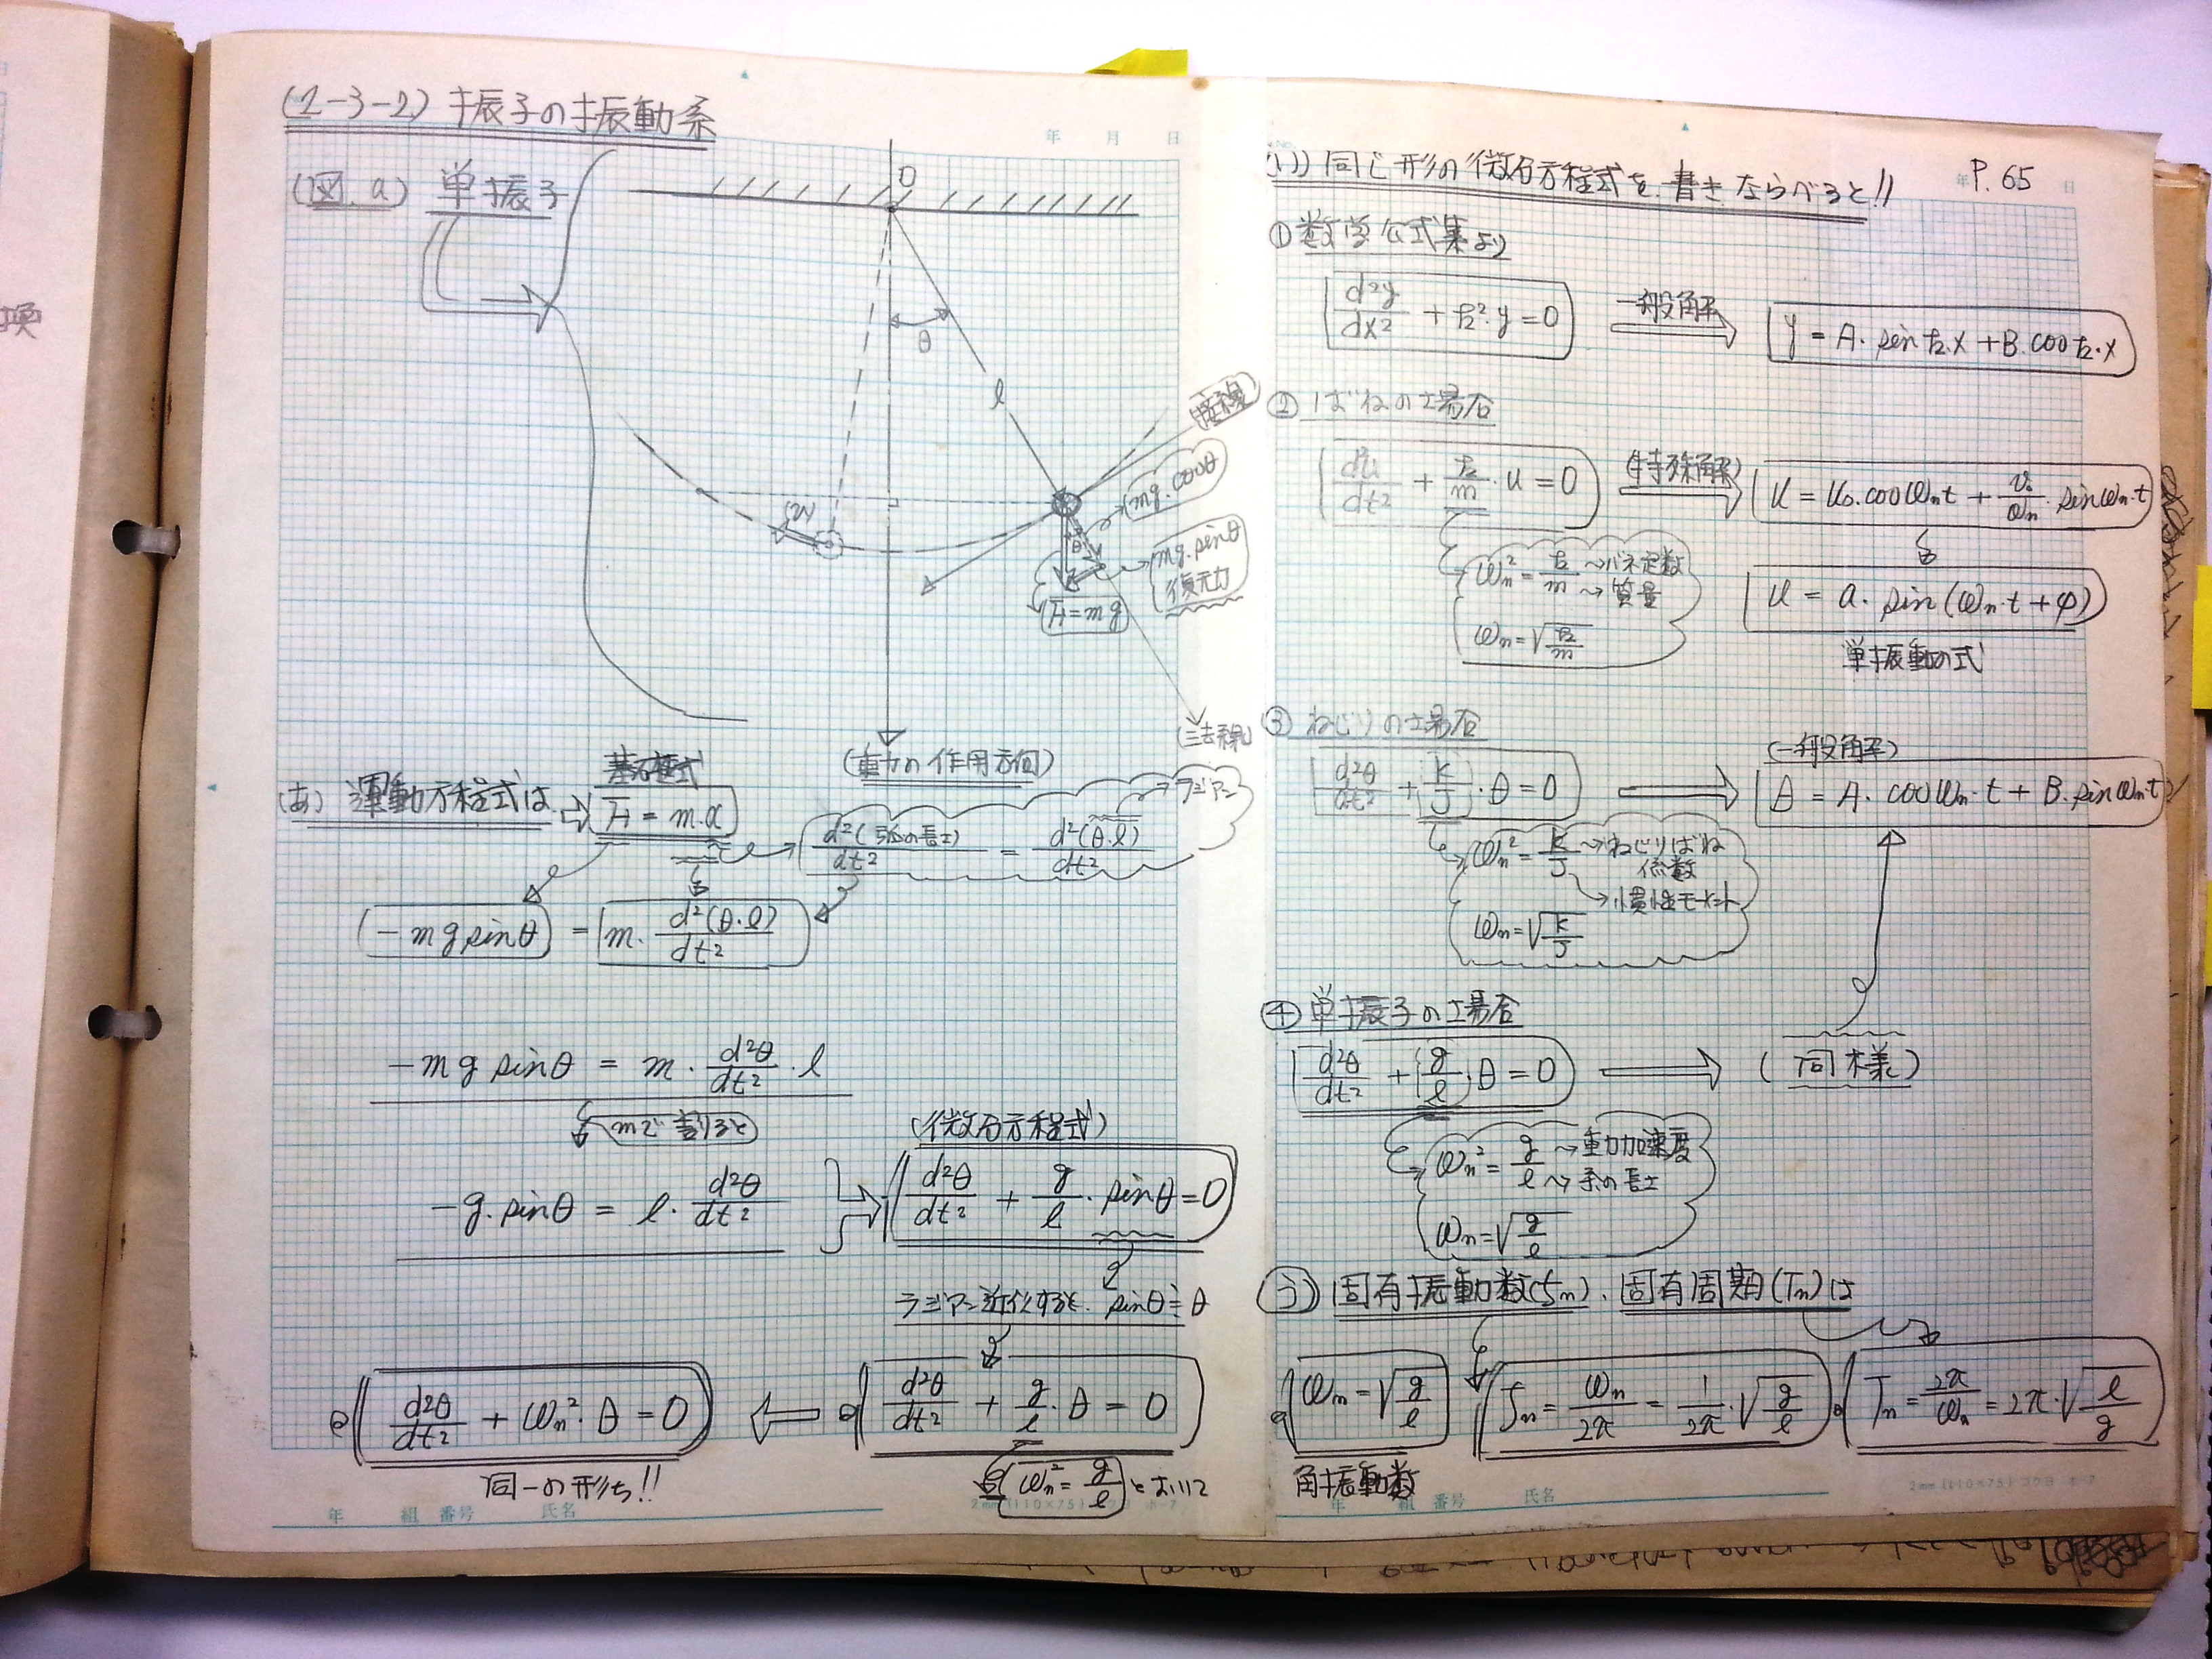 (2-3-2) 振子の振動系
(図.a) 単振子
O
θ
l
接線
mg・cosθ
mg・sinθ
復元力
θ
F=mg
(法線)
(重力の作用方向)
(あ) 運動方程式は
基本式
F = m・α
d²(弧の長さ)/dt² = d²(θ・l)/dt²
ラジアン
-mg sinθ = m・d²(θ・l)/dt²
-mg sinθ = m・d²θ/dt²・l
mで割ると
(微分方程式)
-g・sinθ = l・d²θ/dt²
d²θ/dt² + g/l・sinθ = 0
ラジアン近似すると、sinθ≒θ
d²θ/dt² + g/l・θ = 0
ωn² = g/l とおいて
d²θ/dt² + ωn²・θ = 0
同一の形ち!!
年 組 番号 氏名
年 月 日
P.65
(い) 同じ形の微分方程式を書きならべると!!
① 数学公式集より
d²y/dx² + k²・y = 0
一般解
y = A・sin k・x + B・cos k・x
② ばねの場合
d²u/dt² + k/m・u = 0
(特殊解)
u = u₀・cos ωn t + v₀/ωn・sin ωn・t
ωn² = k/m
バネ定数
質量
ωn = √(k/m)
u = a・sin(ωn・t + φ)
単振動の式
③ ねじりの場合
(一般解)
d²θ/dt² + K/J・θ = 0
θ = A・cos ωn・t + B・sin ωn t
ωn² = K/J
ねじりばね
係数
慣性モーメント
ωn = √(K/J)
④ 単振子の場合
d²θ/dt² + g/l・θ = 0
(同様)
ωn² = g/l
重力加速度
糸の長さ
ωn = √(g/l)
(う) 固有振動数(fn)、固有周期(Tn)は
ωn = √(g/l)
角振動数
fn = ωn/2π = 1/2π・√(g/l)
Tn = 2π/ωn = 2π・√(l/g)
年 組 番号 氏名
換